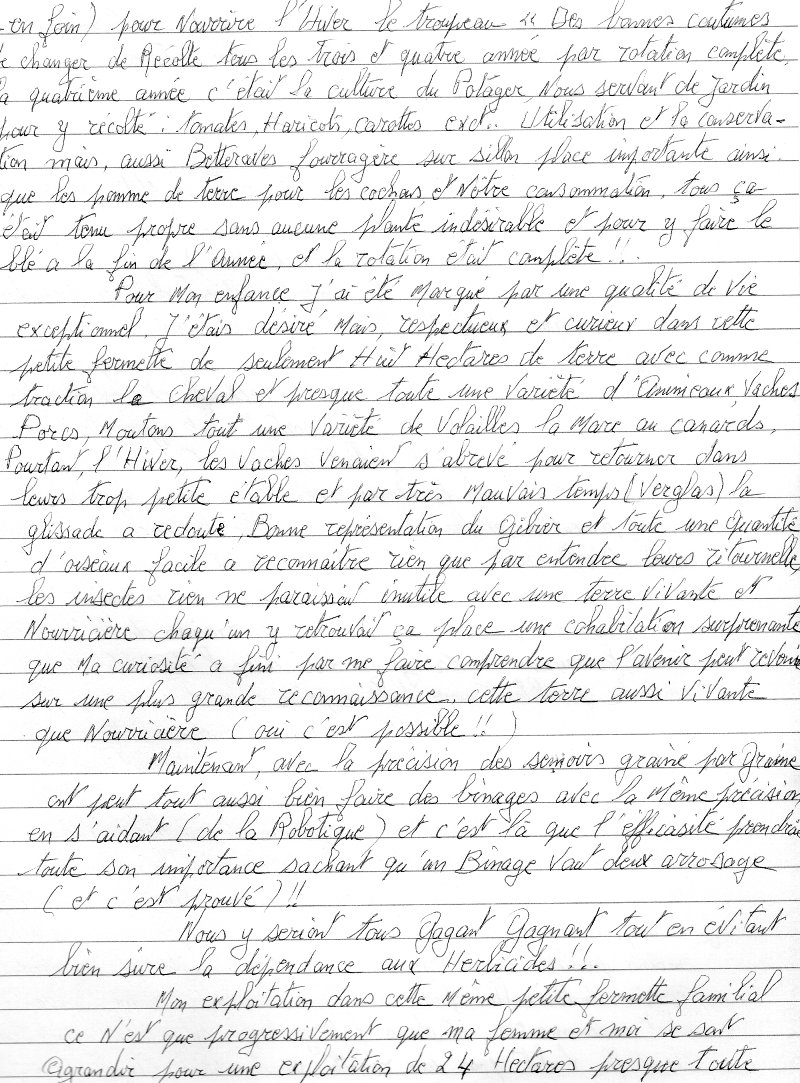 en foin) pour Nourrire l'Hiver le troupeau " Des bonnes coutumes
changer de Récolte tous les trois et quatre année par rotation complète,
la quatrième année c'était la culture du Potager, Nous servant de Jardin
pour y récolté : tomates, Haricots, carottes exct.. Utilisation et la conserva-
tion mais, aussi Betteraves fourragère sur sillon place importante ainsi.
que les pomme de terre pour les cochons et Nôtre consommation, tous ça
était tenu propre sans aucune plante indésirable et pour y faire le
blé a la fin de l'Année, et la rotation était complète !!.
Pour Mon enfance J'ai été Marqué par une qualité de Vie
exceptionnel. J'étais désiré Mais, respectueux et curieux dans cette
petite fermette de seulement Huit Hectares de terre avec comme
traction le cheval et presque toute une Variété d'Animeaux, Vaches
Porcs, Moutons tout une Variété de Volailles la Mare au canards,
Pourtant, l'Hiver, les Vaches Venaient s'abrevé pour retourner dans
leurs trop petite étable et par très Mauvais temps (Verglas) la
glissade a redouté, Bonne représentation du Gibier et toute une Quantité
d'oiseaux facile a reconnaitre rien que par entendre leurs ritournelle,
les insectes rien ne paraissait inutile avec une terre Vivante et
Nourricière chaqu'un y retrouvait ça place une cohabitation surprenante
que Ma curiosité a fini par me faire comprendre que l'avenir peut revenir
sur une plus grande reconnaissance, cette terre aussi Vivante
que Nourricière (oui c'est possible !!)
Maintenant, avec la précision des semoirs graine par Graine
ont peut tout aussi bien faire des binages avec la Même précision
en s'aidant (de la Robotique) et c'est là que l'éfficasité prendrai
toute son importance sachant qu'un Binage Vaut deux arrosage
(et c'est prouvé) !!
Nous y seriont tous Gagant Gagnant tout en évitant
bien sûre la dépendance aux Herbicides !!.
Mon exploitation dans cette Même petite fermette familial
ce N'est que progressivement que ma femme et moi se sont
agrandir pour une exploitation de 24 Hectares presque toute